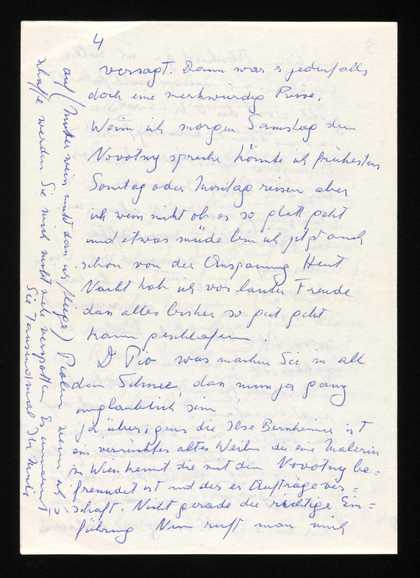 4
versagt. Dann war es jedenfalls
doch eine merkwürdige Reise.
Wenn ich morgen Samstag den
Novotny spreche könnte ich frühestens
Sonntag oder Montag reisen aber
ich weis nicht ob es so glatt geht
und etwas müde bin ich jetzt auch
schon von der Anspannung. Heut
Nacht hab ich vor lauter Freude
das alles bisher so gut geht
kaum geschlafen.
D. Pio was machen Sie in all
dem Schnee, das muss ja ganz
unglaublich sein
Ja übrigens die Ilse Bernheimer ist
ein verrücktes altes Weiblein die eine Malerin
in Wien kennt die mit dem Novotny be-
freundet ist und der er Aufträge ver-
schaft. Nicht gerade die richtige Ein-
führung. Nun ruft man mich
werden Sie mich nicht mehr verspotten. Es umarmt
Sie tausendmal Ihr